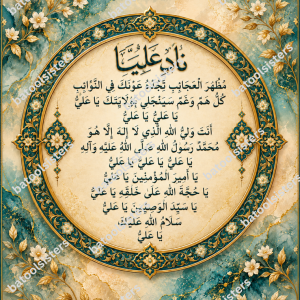 نَادِ عَلِيًّا
مُظْهِرَ الْعَجَائِبِ تَجِدْهُ عَوْنَكَ فِي النَّوَائِبِ
كُلُّ هَمٍّ وَغَمٍّ سَيَنْجَلِي بِوِلَايَتِكَ يَا عَلِيُّ
يَا عَلِيُّ يَا عَلِيُّ
أَنْتَ وَلِيُّ اللهِ الَّذِي لَا إِلٰهَ إِلَّا هُوَ
مُحَمَّدٌ رَسُولُ اللهِ صَلَّى اللهُ عَلَيْهِ وَآلِهِ
يَا عَلِيُّ يَا عَلِيُّ يَا عَلِيُّ
يَا أَمِيرَ الْمُؤْمِنِينَ يَا عَلِيُّ
يَا حُجَّةَ اللهِ عَلَى خَلْقِهِ يَا عَلِيُّ
يَا سَيِّدَ الْوَصِيِّينَ يَا عَلِيُّ
سَلَامُ اللهِ عَلَيْكَ
يَا عَلِيُّ
batoolsisters